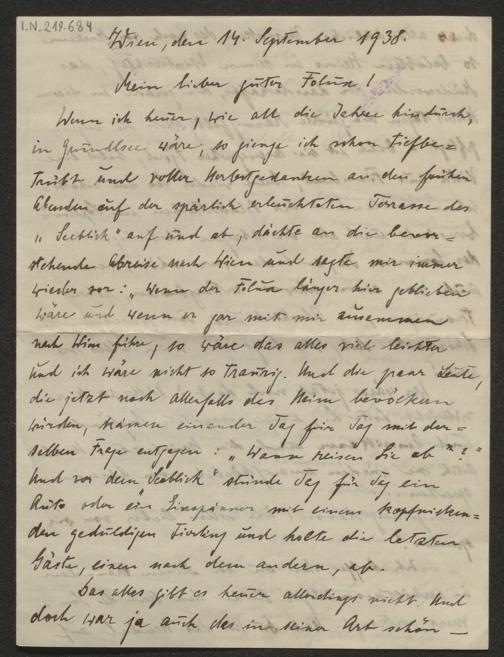 I.N. 219.684
Wien, den 14. September 1938.
Mein lieber guter Foluse!
Wenn ich heuer, wie all die Jahre hindurch,
in Grundlsee wäre, so gienge ich schon tiefbe=
trübt und voller Herbstgedanken an den frühen
Abenden auf der spärlich erleuchteten Terrasse des
„Seeblick" auf und ab, dächte an die bevor=
stehende Abreise nach Wien und sagte mir immer
wieder vor: „Wenn der Foluse länger hier geblieben
wäre und wenn er gar mit mir zusammen
nach Wien führe, so wäre das alles viel leichter
und ich wäre nicht so traurig. Und die paar Leute,
die jetzt noch allenfalls das Heim bevölkern
würden, kämen einander Tag für Tag mit der=
selben Frage entgegen: „Wann reisen Sie ab?"
Und vor dem „Seeblick" stünde Tag für Tag ein
Auto oder ein Einspänner mit einem kopfnicken=
den geduldigen und holte die letzten
Gäste, einen nach dem andern, ab.
Das alles gibt es heuer allerdings nicht. Und
doch war ja auch das in seiner Art schön –